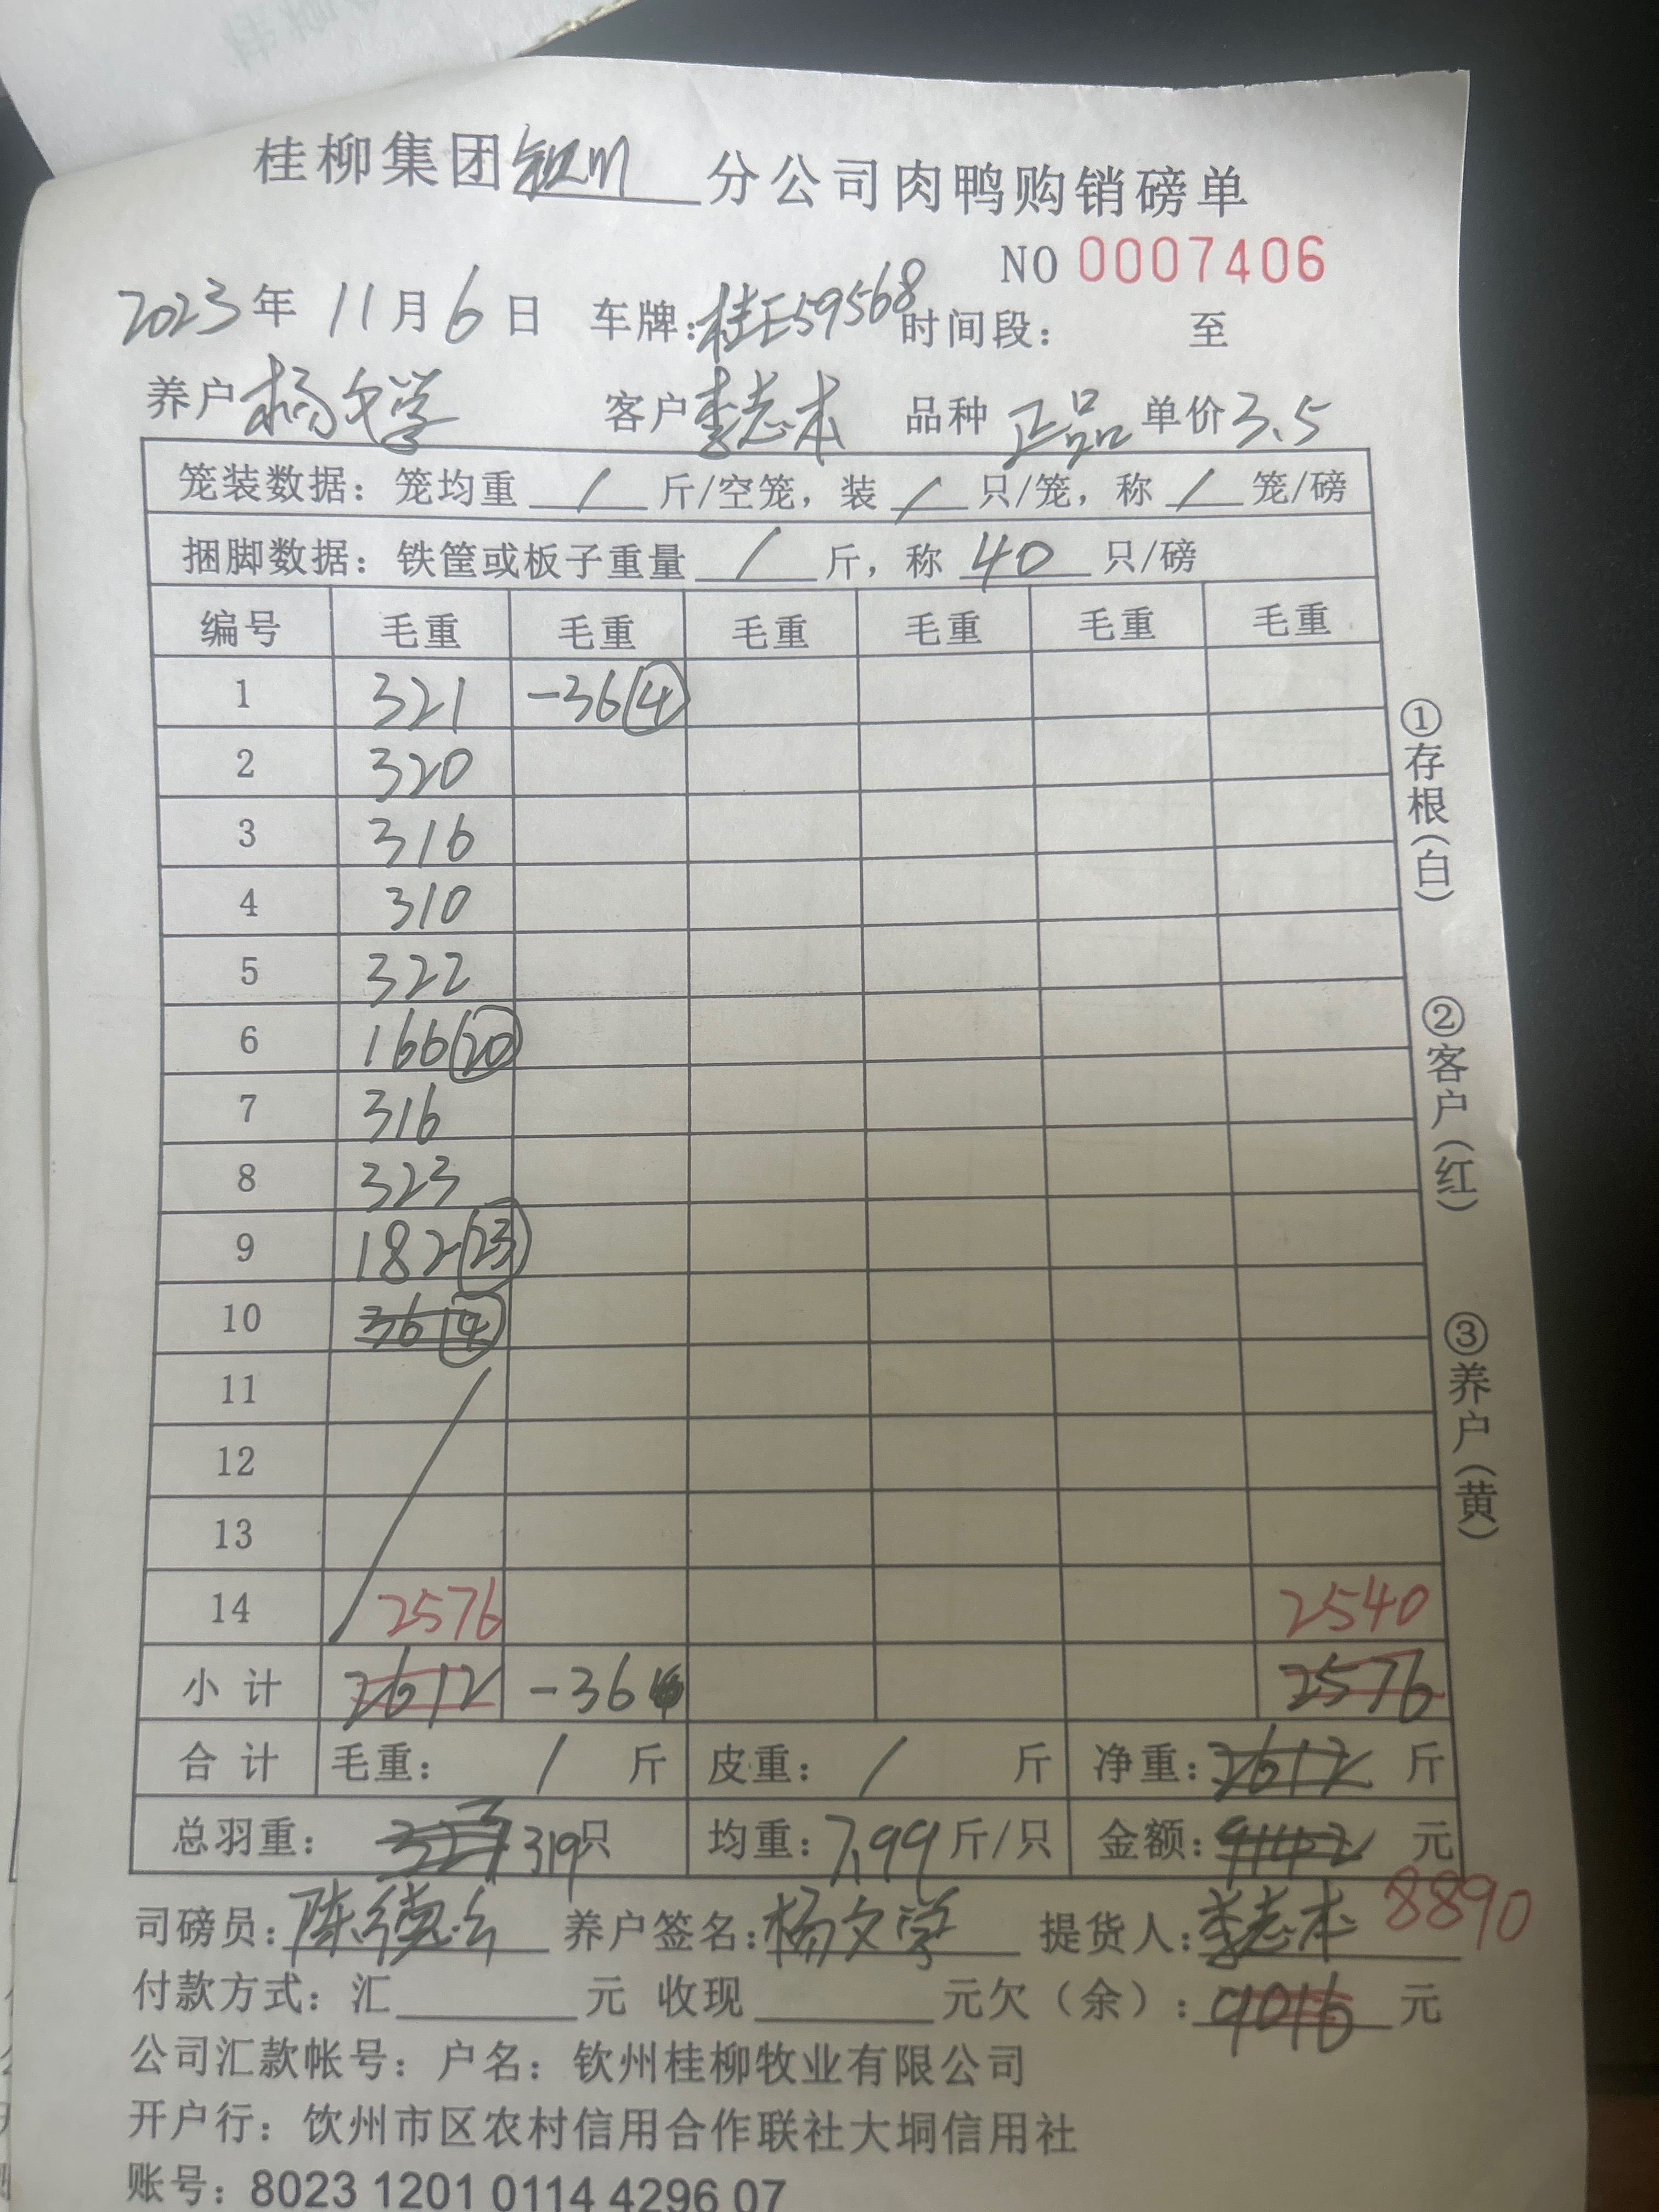 桂柳集团钦州分公司肉鸭购销磅单
NO 0007406
2023年 11月 6日 车牌:桂E59568 时间段: 至
养户 杨文学 客户 李志本 品种 正品 单价 3.5
笼装数据: 笼均重 / 斤/空笼, 装 / 只/笼, 称 / 笼/磅
捆脚数据: 铁筐或板子重量 / 斤, 称 40 只/磅
编号 毛重 毛重 毛重 毛重 毛重 毛重
1 321 -36(4)
2 320
3 316
4 310
5 322
6 166(20)
7 316
8 323
9 182(23)
10 36(4)
11
12
13
14 2576 2540
小计 2612 -36 2576
合计 毛重: / 斤 皮重: / 斤 净重: 2612 斤
总羽重: 319只 均重: 7.99 斤/只 金额: 9142 元
8890
司磅员: 养户签名: 杨文学 提货人: 李志本
付款方式: 汇 元 收现 元欠(余): 9016 元
公司汇款帐号: 户名: 钦州桂柳牧业有限公司
开户行: 钦州市区农村信用合作联社大垌信用社
账号: 8023 1201 0114 4296 07
①存根(白)
②客户(红)
③养户(黄)